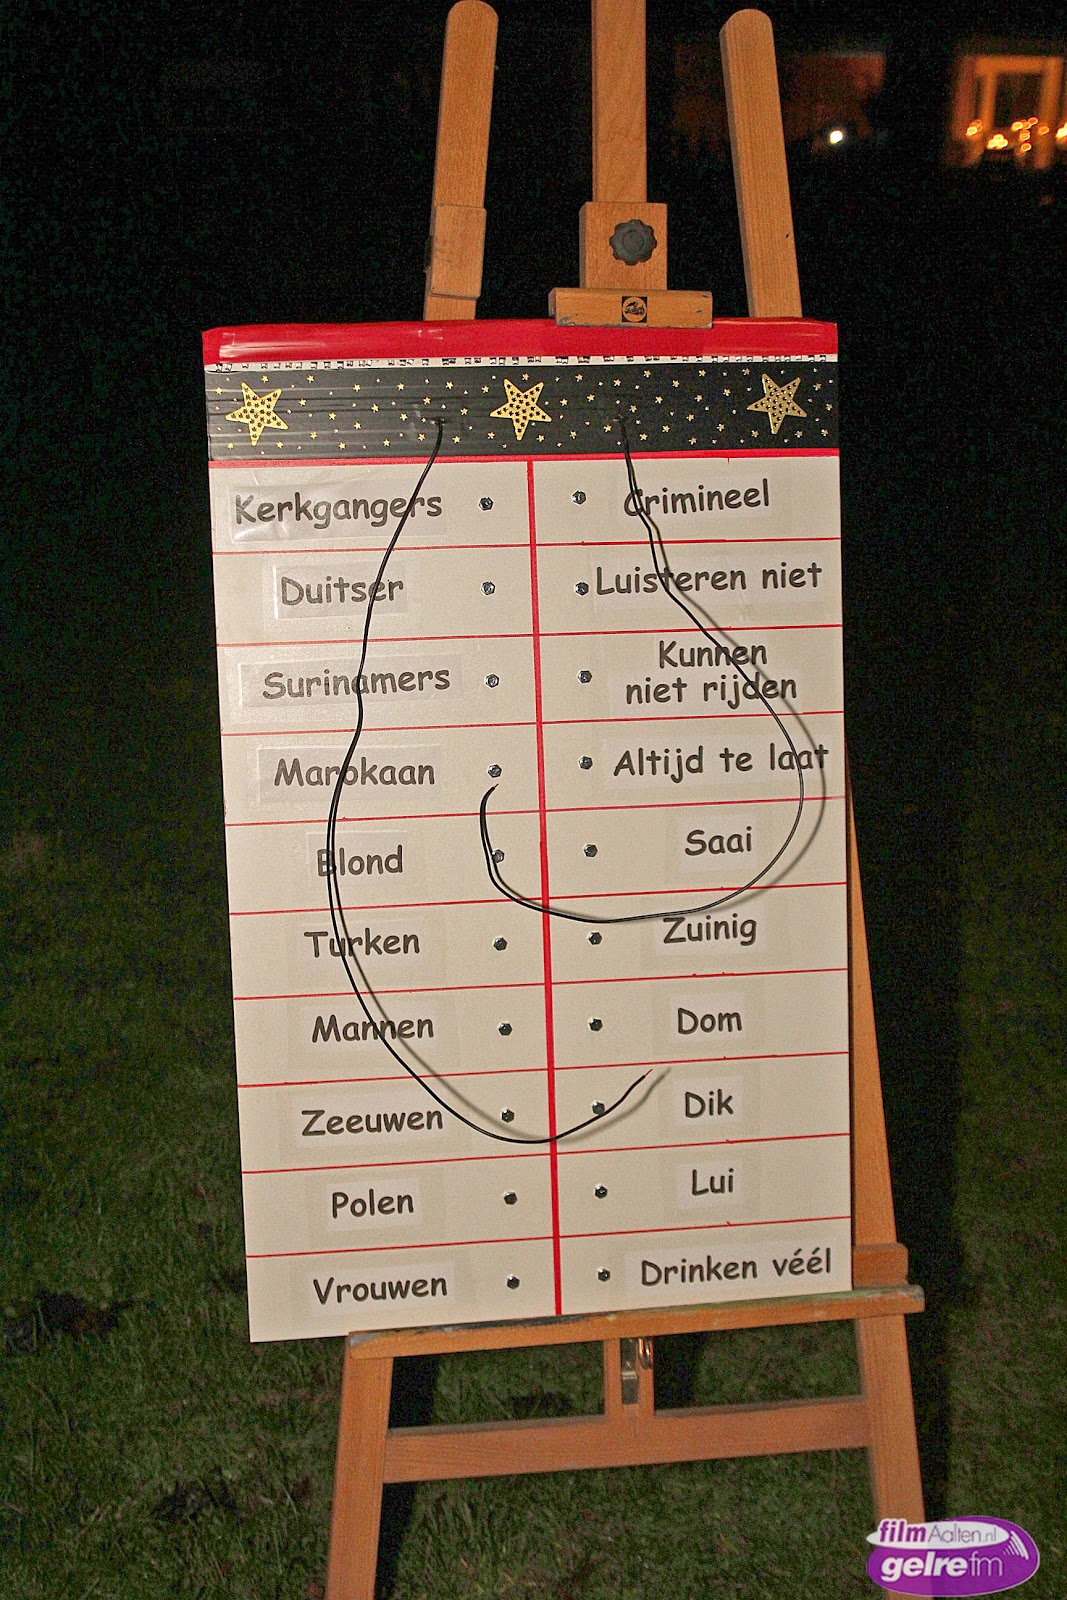 Kerkgangers
Crimineel
Duitser
Luisteren niet
Surinamers
Kunnen
niet rijden
Marokaan
Altijd te laat
Blond
Saai
Turken
Zuinig
Mannen
Dom
Zeeuwen
Dik
Polen
Lui
Vrouwen
Drinken véél
filmAalten.nl
gelrefm